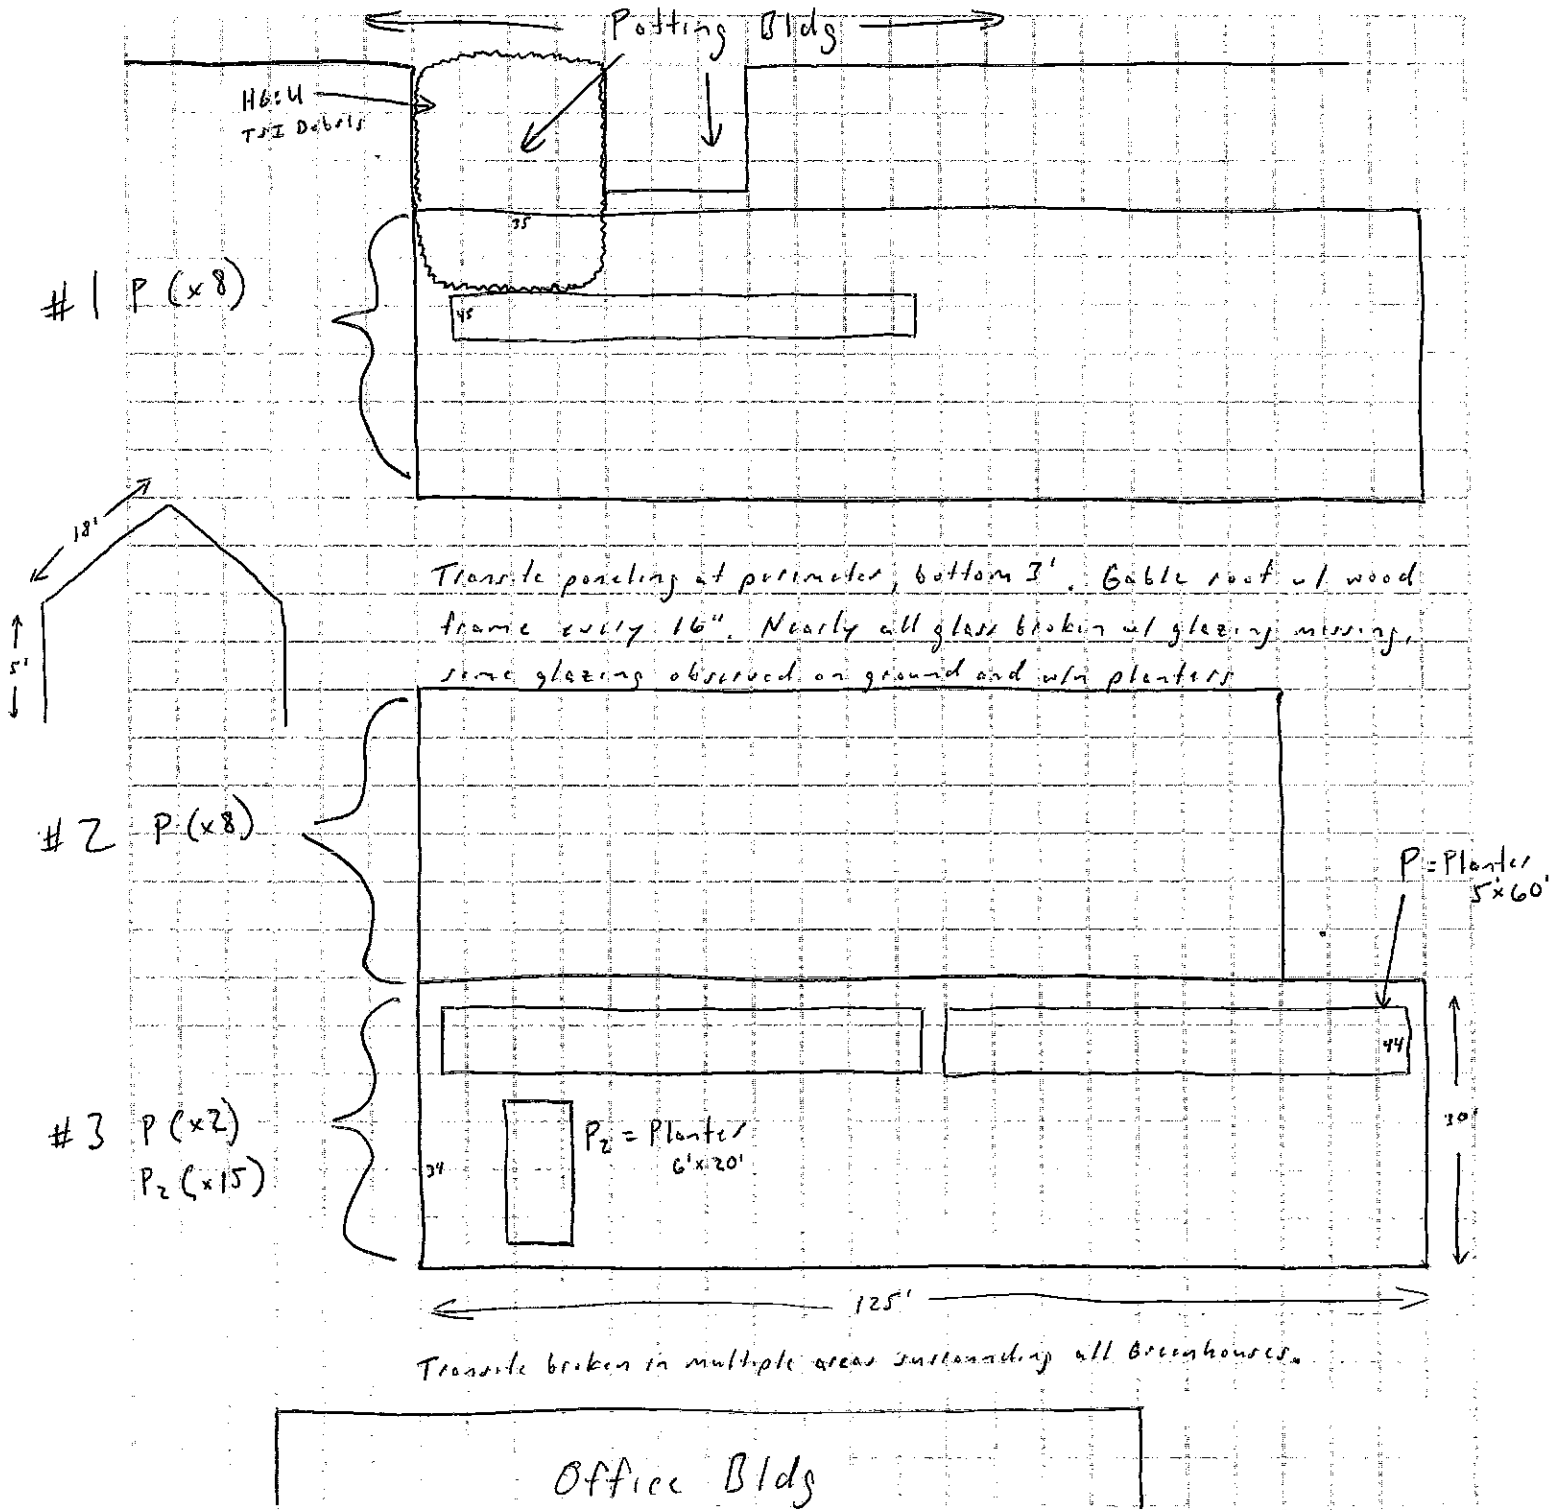 Potting Bldg
TSI Debris
35
#1 P (x8)
45
18'
5'
Transite paneling at perimeter, bottom 3'. Gable roof w/ wood
frame every 16". Nearly all glass broken w/ glazing missing,
some glazing observed on ground and w/n planters
#2 P (x8)
P = Planter
5'x60'
44
#3 P (x2)
P₂ (x15)
34
P₂ = Planter
6'x20'
30'
125'
Transite broken in multiple areas surrounding all Greenhouses.
Office Bldg